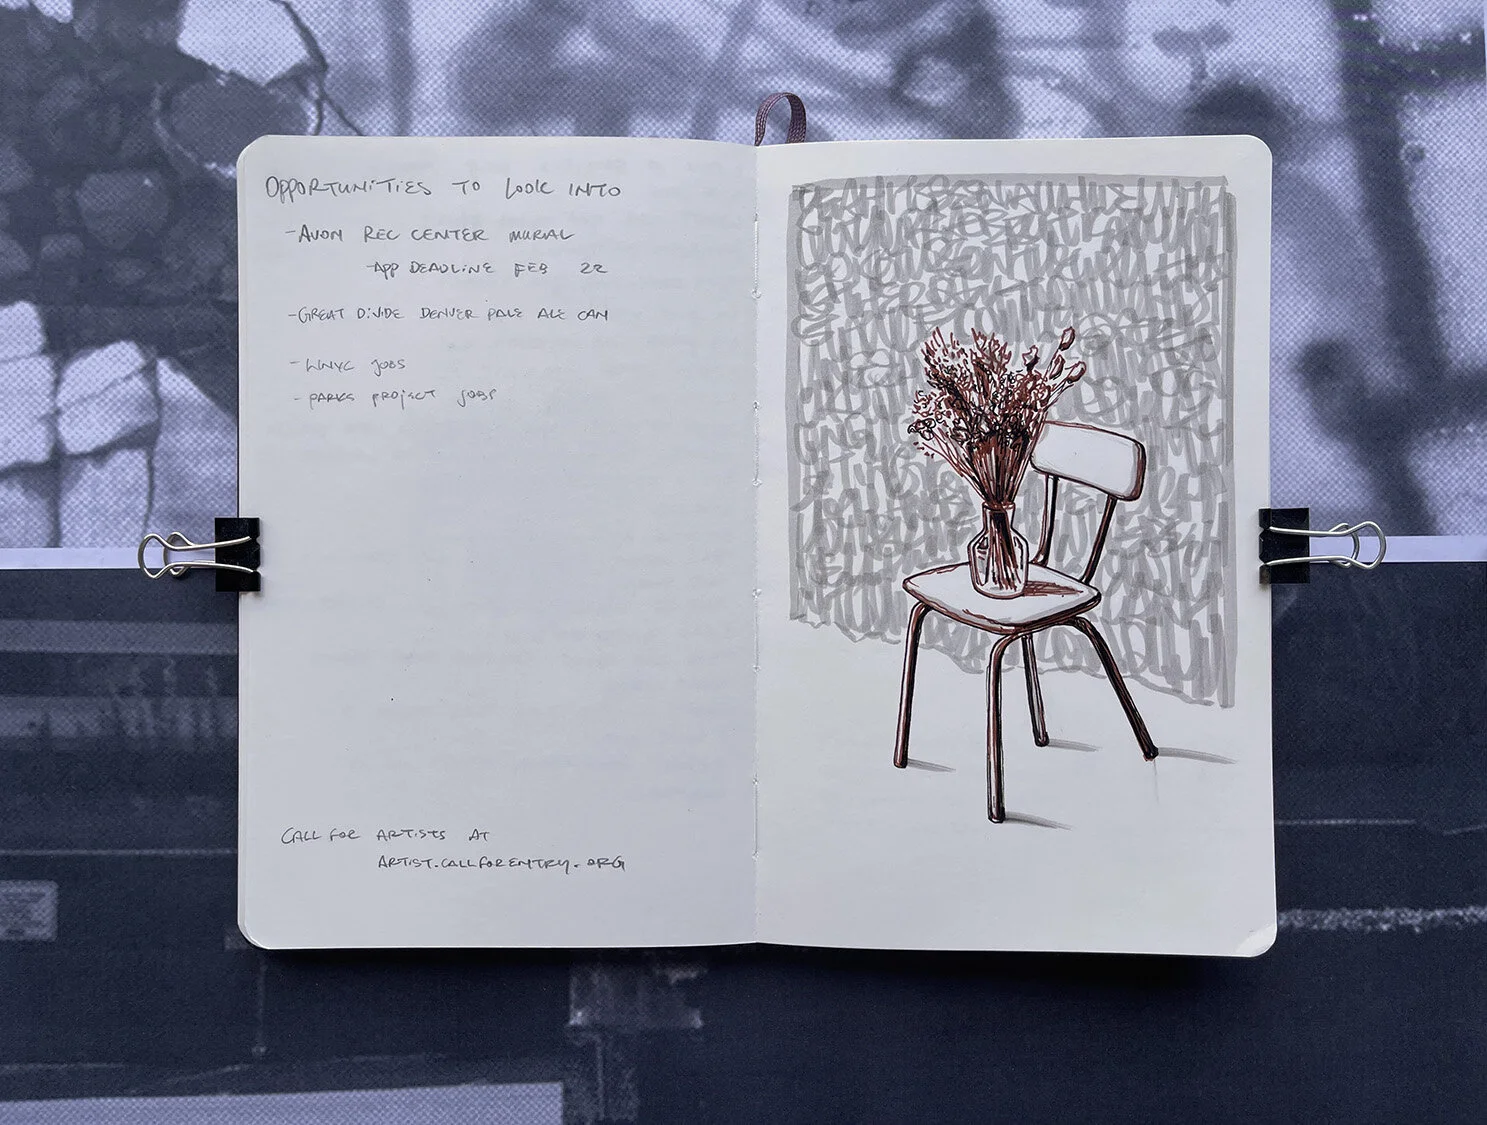 OPPORTUNITIES TO LOOK INTO
- AVON REC CENTER MURAL
- APP DEADLINE FEB 22
- GREAT DIVIDE DENVER PALE ALE CAN
- JOBS
- PARKS PROJECT JOBS
CALL FOR ARTISTS AT
ARTIST.CALLFORENTRY.ORG